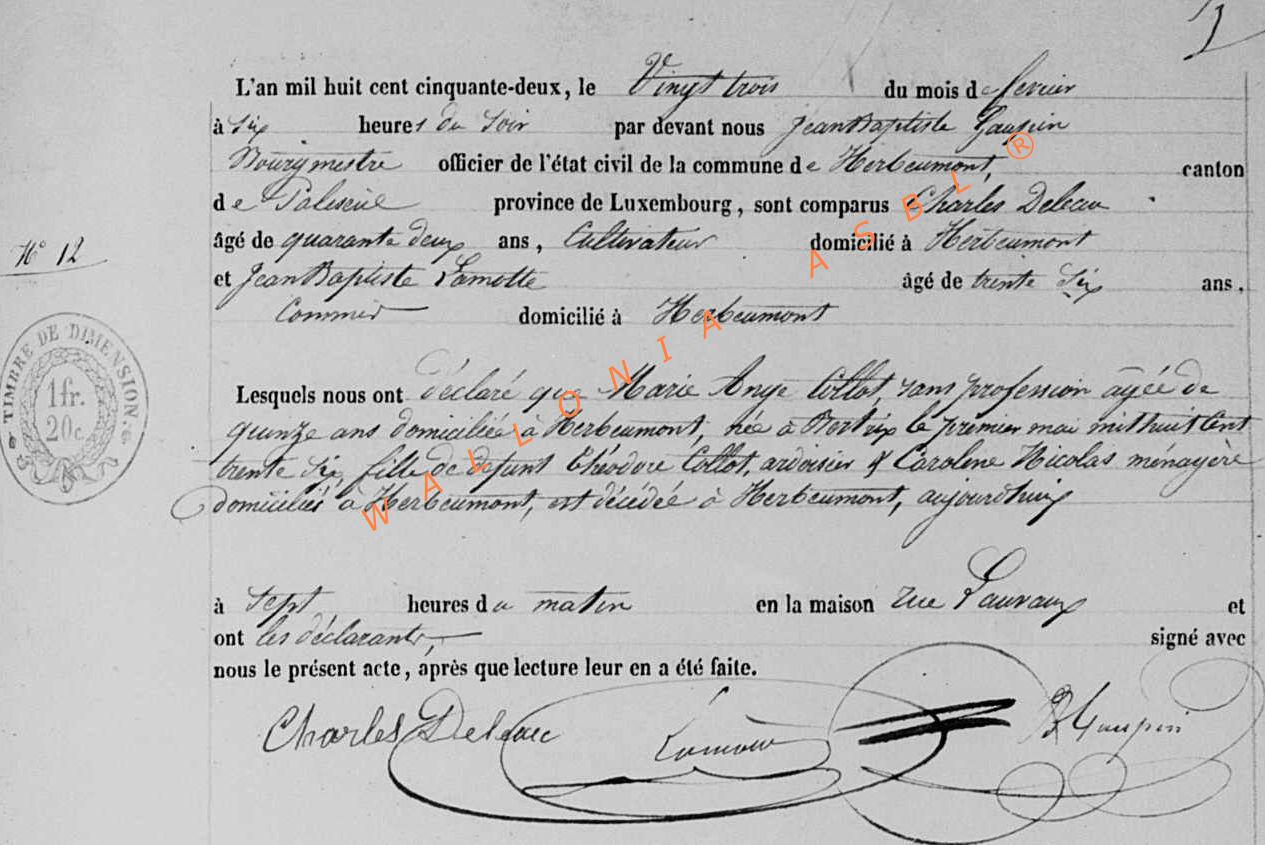 L'an mil huit cent cinquante-deux, le Vingt trois du mois de fevrier
à Six heures du Soir par devant nous Jean Baptiste Gaupin
Bourgmestre officier de l'état civil de la commune de Herbeumont, canton
de Paliseul province de Luxembourg, sont comparus Charles Deleau
âgé de quarante deux ans, Cultivateur domicilié à Herbeumont
N° 12
et Jean Baptiste Lamotte âgé de trente Six ans,
domicilié à Herbeumont
TIMBRE DE DIMENSION.
1 fr.
20 c.
Lesquels nous ont déclaré que Marie Ange Collot, sans profession agée de
quinze ans domiciliée à Herbeumont, née à Bertrix le premier mai mil huit Cent
trente Six, fille de defunt Théodore Collot, ardoisier & Caroline Nicolas ménagère
domiciliés à Herbeumont, est décédée à Herbeumont, aujourdhuy
à Sept heures du matin en la maison rue Lauvaux et
ont les déclarants, signé avec
nous le présent acte, après que lecture leur en a été faite.
Charles Deleau Lamotte B Gaupin
WALLONIA ASBL ®